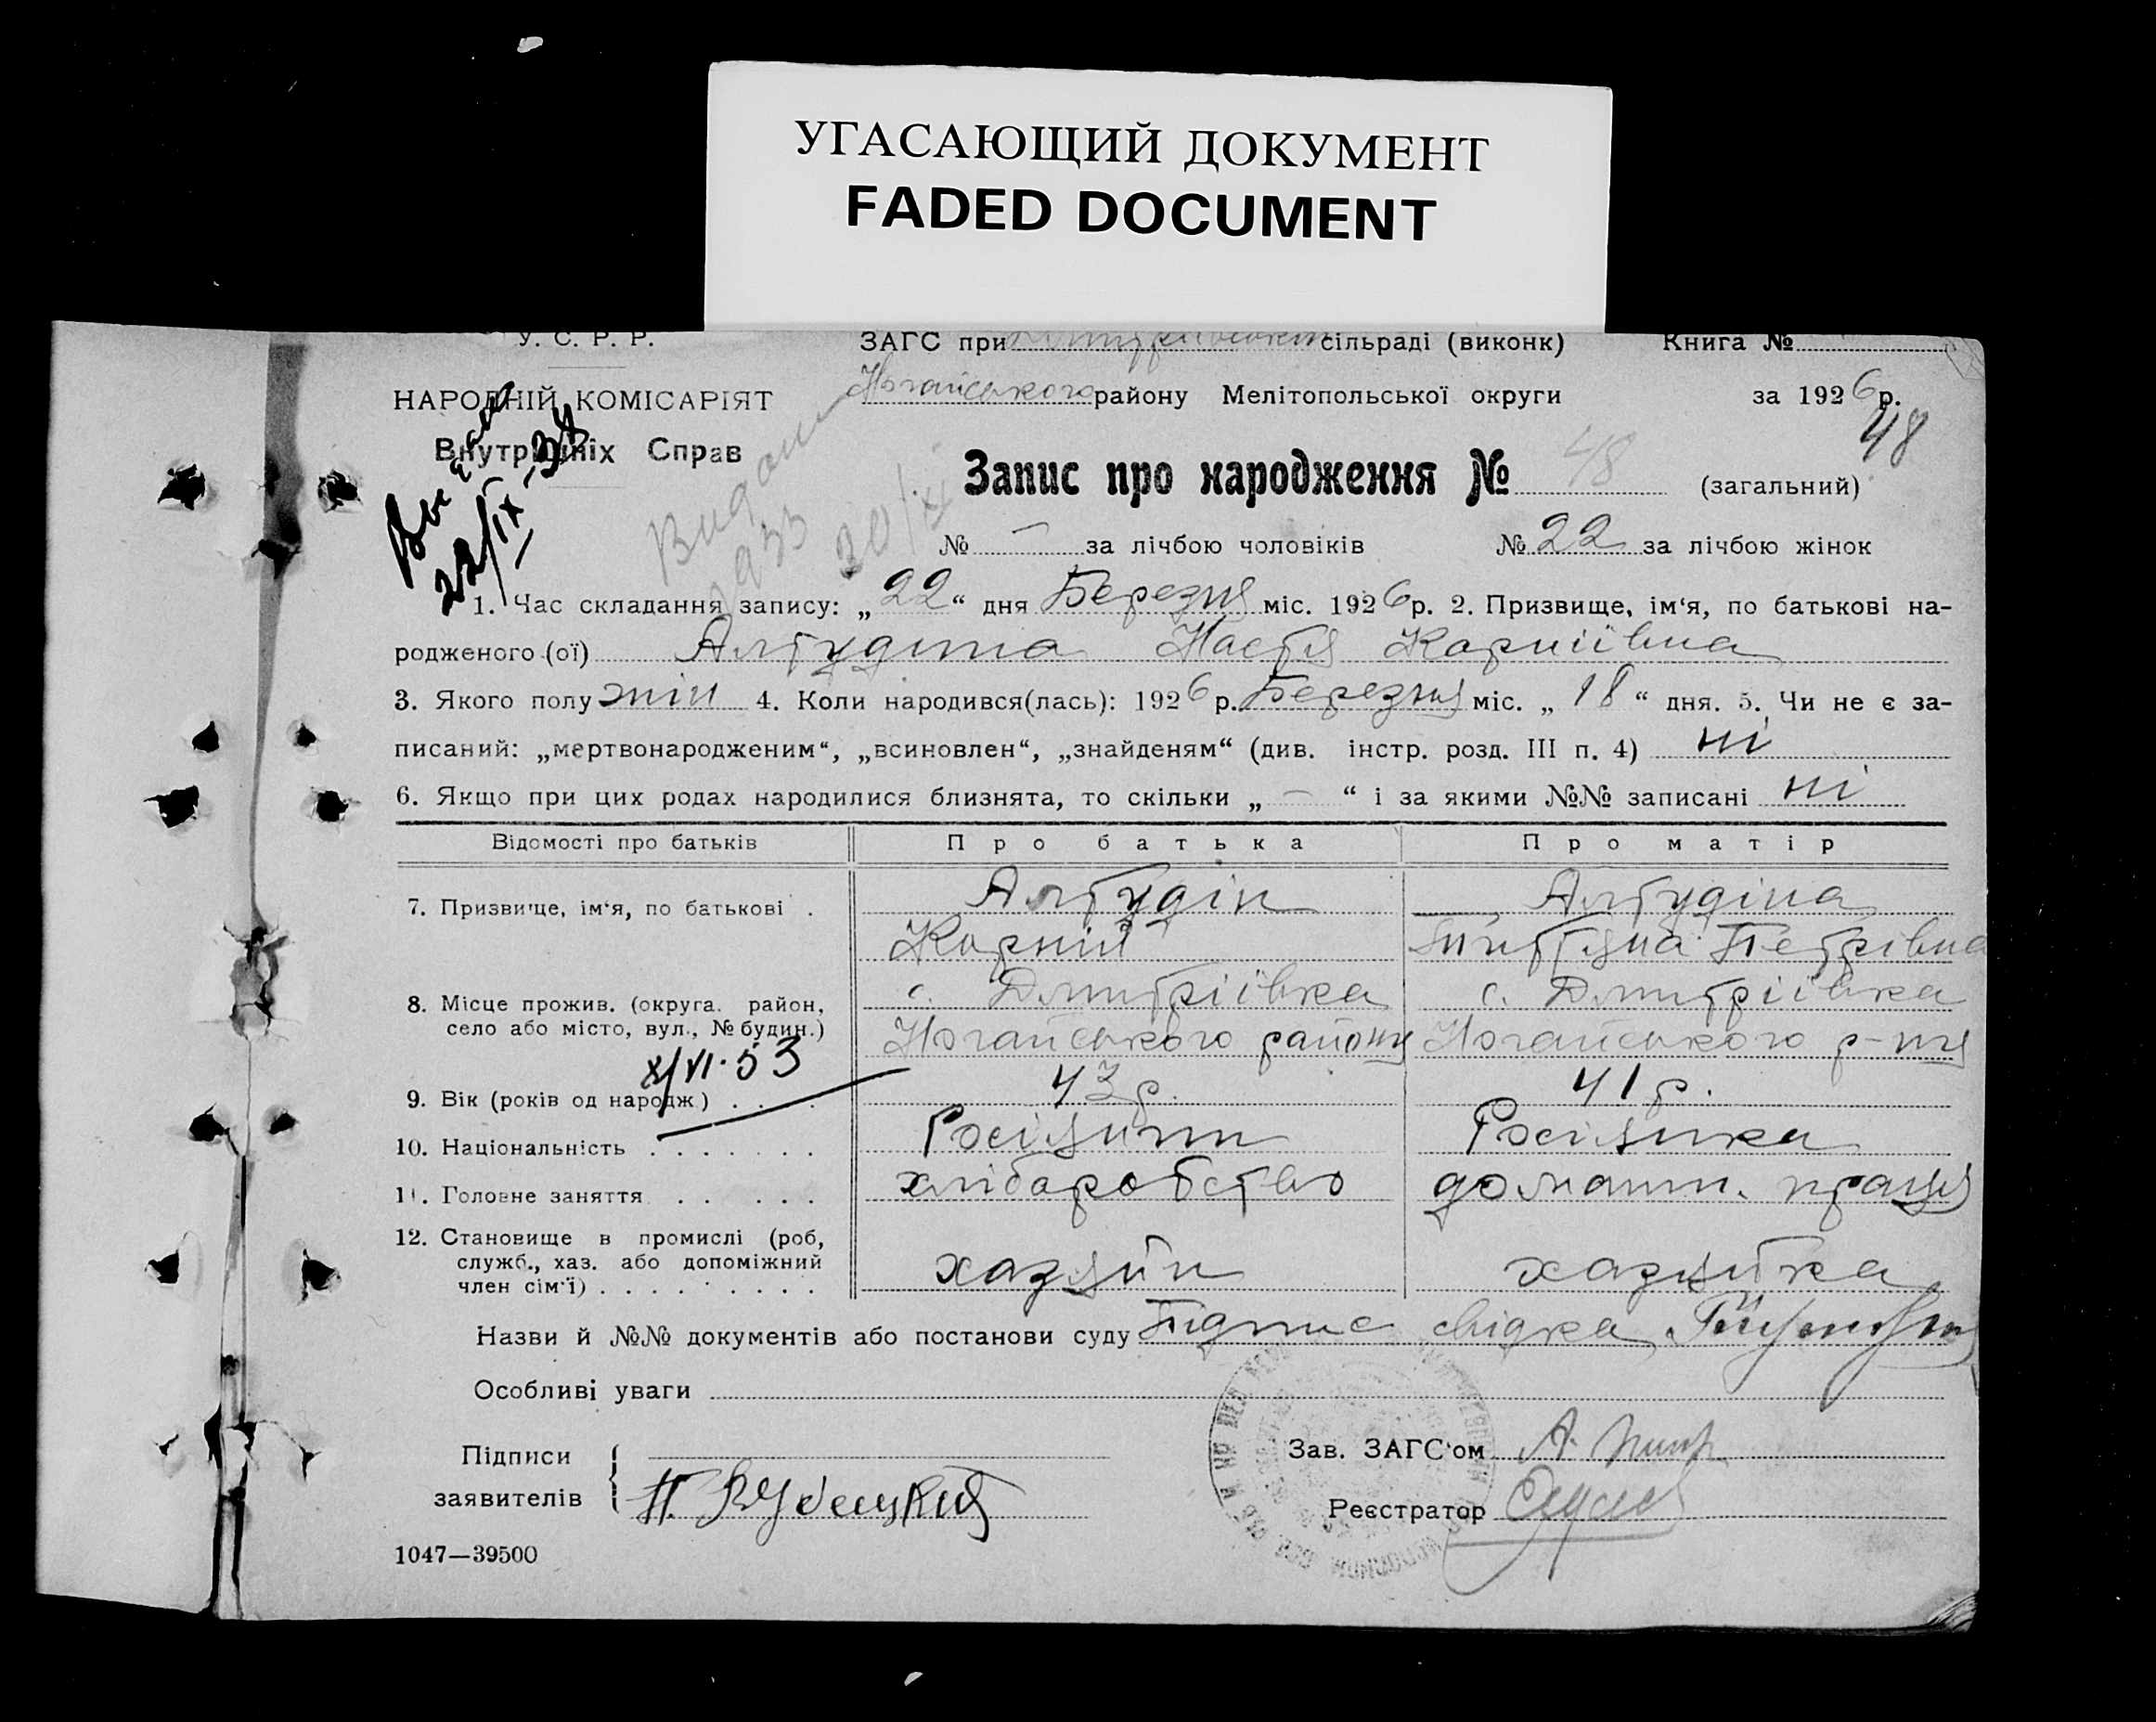 УГАСАЮЩИЙ ДОКУМЕНТ
FADED DOCUMENT
У. С. Р. Р.
ЗАГС при сільраді (виконк)
Книга №
НАРОДНІЙ КОМІСАРІЯТ
Внутрішніх Справ
Ногайського району Мелітопольської округи
за 1926 р.
48
22/IX-38
Видано
1933
20/XI
Запис про народження № 48 (загальний)
№ — за лічбою чоловіків
№ 22 за лічбою жінок
1. Час складання запису: „22“ дня Березня міс. 1926 р. 2. Призвище, ім‘я, по батькові на-
родженого (ої) Алтудіна Настя Корніївна
3. Якого полу жін 4. Коли народився(лась): 1926 р. Березня міс. „18“ дня. 5. Чи не є за-
писаний: „мертвонародженим“, „всиновлен“, „знайденям“ (див. інстр. розд. III п. 4) ні
6. Якщо при цих родах народилися близнята, то скільки „—“ і за якими №№ записані ні
Відомості про батьків
Про батька
Про матір
7. Призвище, ім‘я, по батькові .
Алтудін
Корній
Алтудіна
Петрівна
8. Місце прожив. (округа. район,
село або місто, вул., № будин.)
с. Дмитріївка
Ногайського району
с. Дмитріївка
Ногайського р-ну
X/VI-53
9. Вік (років од народж) . . . .
43 р.
41 р.
10. Національність . . . . . . .
Росіянин
Росіянка
11. Головне заняття . . . . .
хліборобство
домашн. праця
12. Становище в промислі (роб,
служб., хаз. або допоміжний
член сім‘ї) . . . . . . . . .
хазяїн
хазяйка
Назви й №№ документів або постанови суду Підпис свідка
Особливі уваги
Підписи
заявителів
Зав. ЗАГС‘ом
Реєстратор
1047—39500